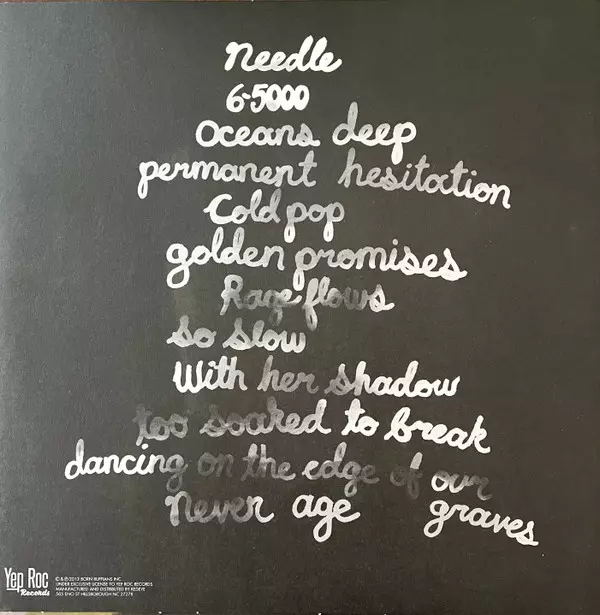 Needle
6-5000
Oceans deep
permanent hesitation
Cold pop
golden promises
Rage flows
so slow
With her shadow
too soaked to break
dancing on the edge of our
Never age graves
Yep Roc
Records
© & ℗ 2013 BORN RUFFIANS INC.
UNDER EXCLUSIVE LICENSE TO YEP ROC RECORDS
MANUFACTURED AND DISTRIBUTED BY REDEYE
505 ENO ST HILLSBOROUGH NC 27278